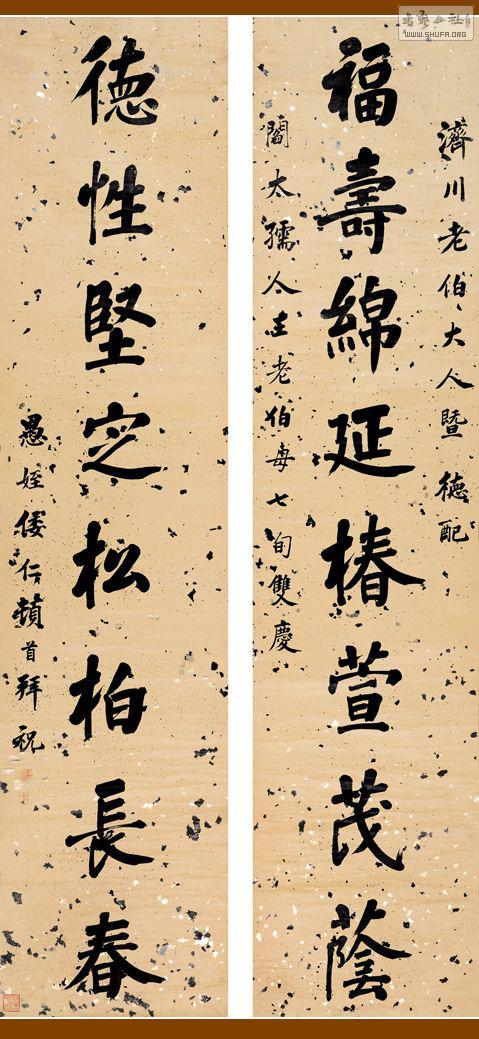 書藝公社
WWW.SHUFA.ORG
濟川老伯大人暨德配
福壽綿延椿萱茂蔭
閻太孺人老伯母七旬雙慶
德性堅定松柏長春
愚姪倭仁頓首拜祝